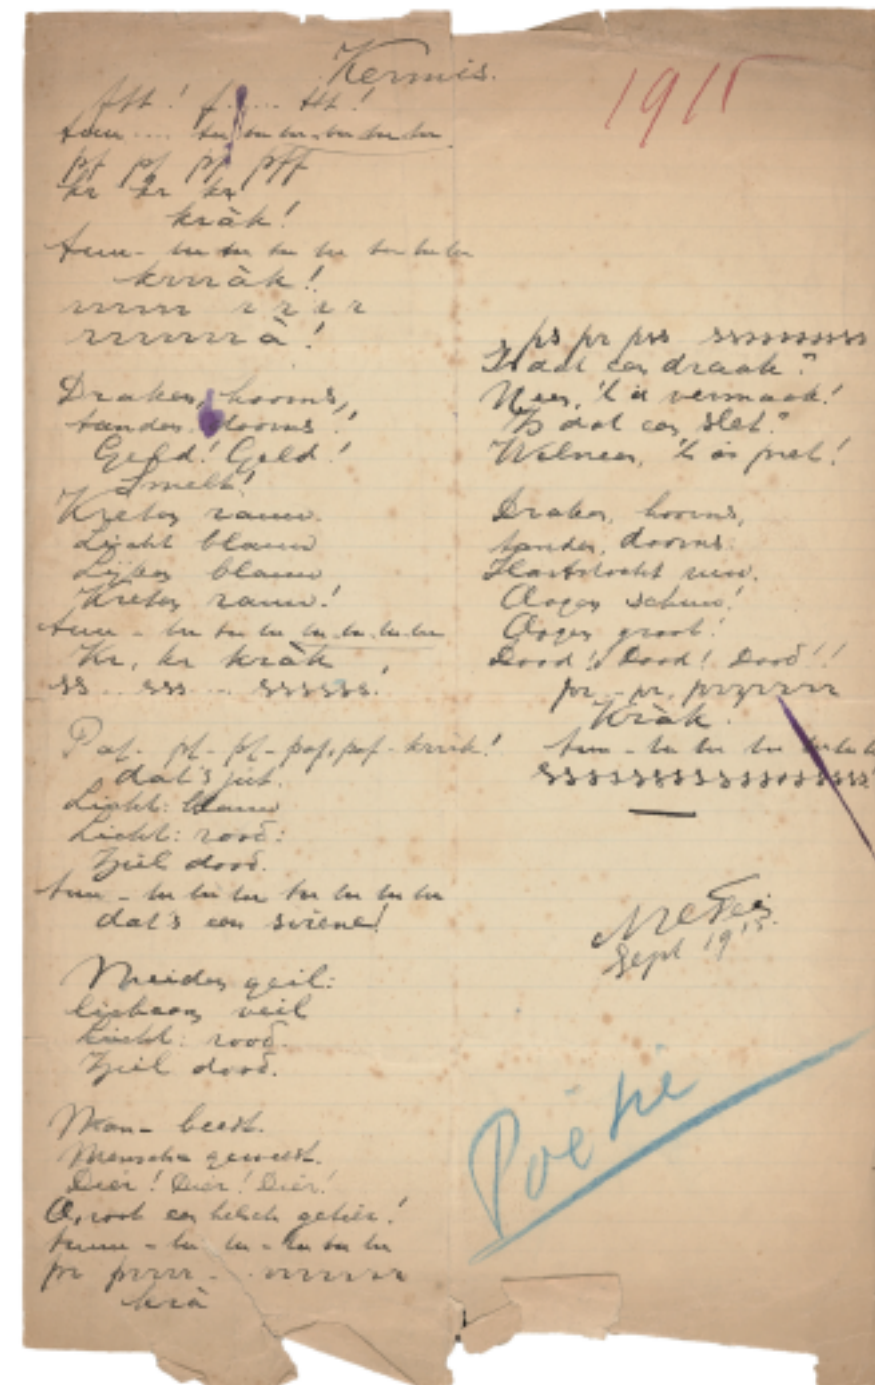 Kermis.
1915
fft! f..... ttt!
tuu.... tu tu tu tu tu tu tu
pf pf pf pff
kr kr kr
kràk!
tuu- tu tu tu tu tu tu tu
krrràk!
rrrrrr r r r r
rrrrrrr à!
Draken, hoorns,
tanden, doorns!
Geld! Geld!
Smelt!
Kreten rauw.
Licht blauw
Lijken blauw
Kreten rauw!
tuu - tu tu tu tu tu tu tu
Kr, kr kràk
ss ... sss ... ssssss!
Paf- pf- pf- paf, paf- krrik!
dat's jut.
Licht: blauw
Licht: rood:
Ziel dood.
tuu - tu tu tu tu tu tu tu
dat's een sirene!
Meiden geil:
lichaam veil
Licht: rood.
Ziel dood.
Man- beest.
Mensch geweest.
Dier! Dier! Dier!
O, rook en helsch getier!
tuuu - tu tu - tu tu tu
pr prrrr - - rrrrrrr
krà
ps pr pss sssssssss
Is dat een draak?
Neen, 't is vermaak!
Is dat een slet?
Welneen, 't is pret!
Draken, hoorns,
tanden, doorns.
Hartstocht ruw.
Oogen schuw!
Oogen groot!
Dood! Dood! Dood!!
pr - pr, prrrrrrr
Kràk.
tuu - tu tu tu tu tu tu
ssssssssssssssss!
Sept 1915.
Poëzie